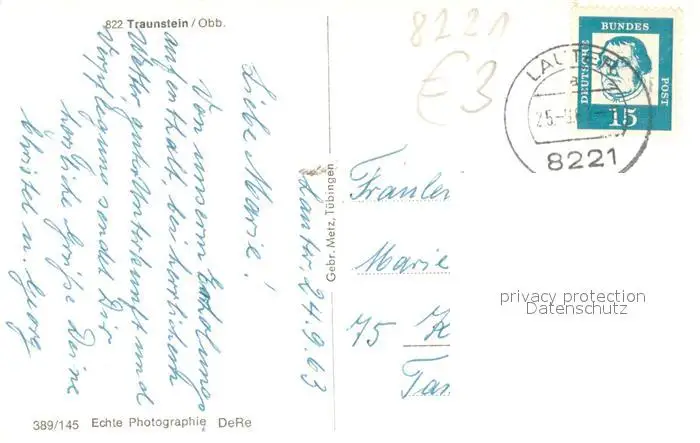 822 Traunstein/Obb.
Lauter, 24.9.63
Liebe Marie!
Von unserm Erholungs-
aufenthalt, bei herrlichem
Wetter, guter Unterkunft und
Verpflegung sendet Dir
herzliche Grüße Deine
Christel u. Georg
389/145 Echte Photographie DeRe
Gebr. Metz, Tübingen
8221
€3
LAUTER
a
25.-9.6
8221
DEUTSCHE
BUNDES
POST
15
Fräulein
Marie
75 K
Tan
privacy protection
Datenschutz